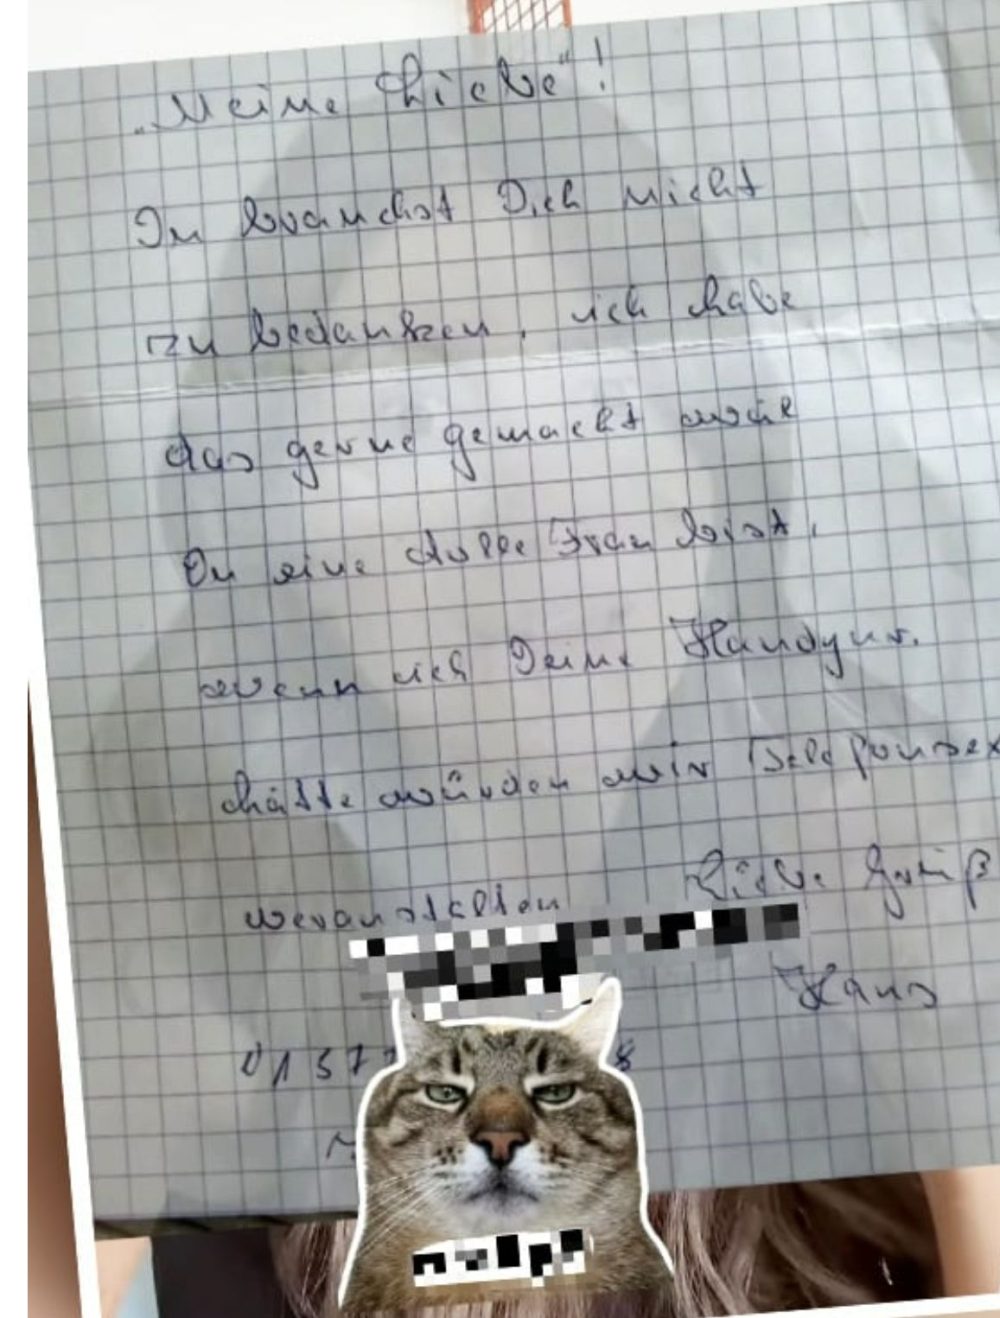 „Meine Liebe"!
Du brauchst Dich nicht
zu bedanken, ich habe
das gerne gemacht weil
Du eine tolle Frau bist,
wenn ich Deine Handynr.
hätte würden wir
veranstalten Liebe Grüß
Hans